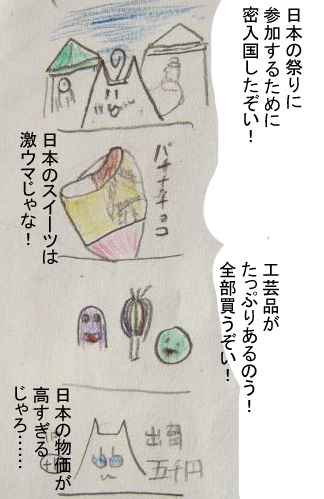 日本の祭りに
参加するために
密入国したぞい！
バナナチョコ
日本のスイーツは
激ウマじゃな！
工芸品が
たっぷりあるのう！
全部買うぞい！
出費
五千円
日本の物価が
高すぎる
じゃろ……